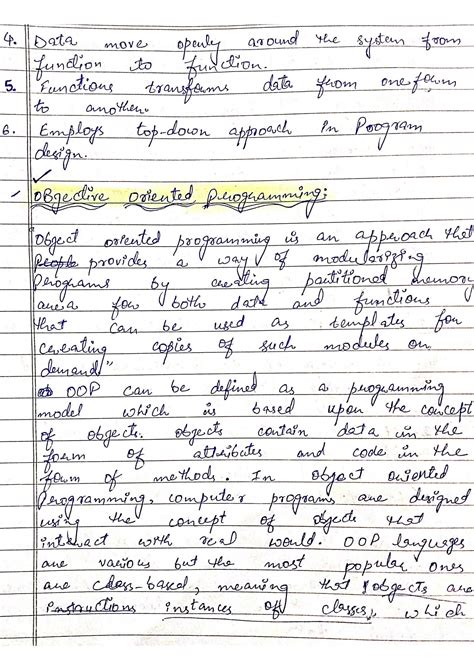 4. Data move openly around the system from
function to function.
5. Functions transforms data from one form
to another.
6. Employs top-down approach in Program
design.
OBjective oriented programming:
Object oriented programming is an approach that
People provides a way of modularizing
programs by creating partitioned memory
area for both data and functions
that can be used as templates for
creating copies of such modules on
demand"
OOP can be defined as a programming
model which is based upon the concept
of objects. objects contain data in the
form of attributes and code in the
form of methods. In object oriented
Programming, computer programs are designed
using the concept of objects that
interact with real would. OOP languages
are various but the most popular ones
are class-based, meaning that objects are
Instructions instances of classes, which